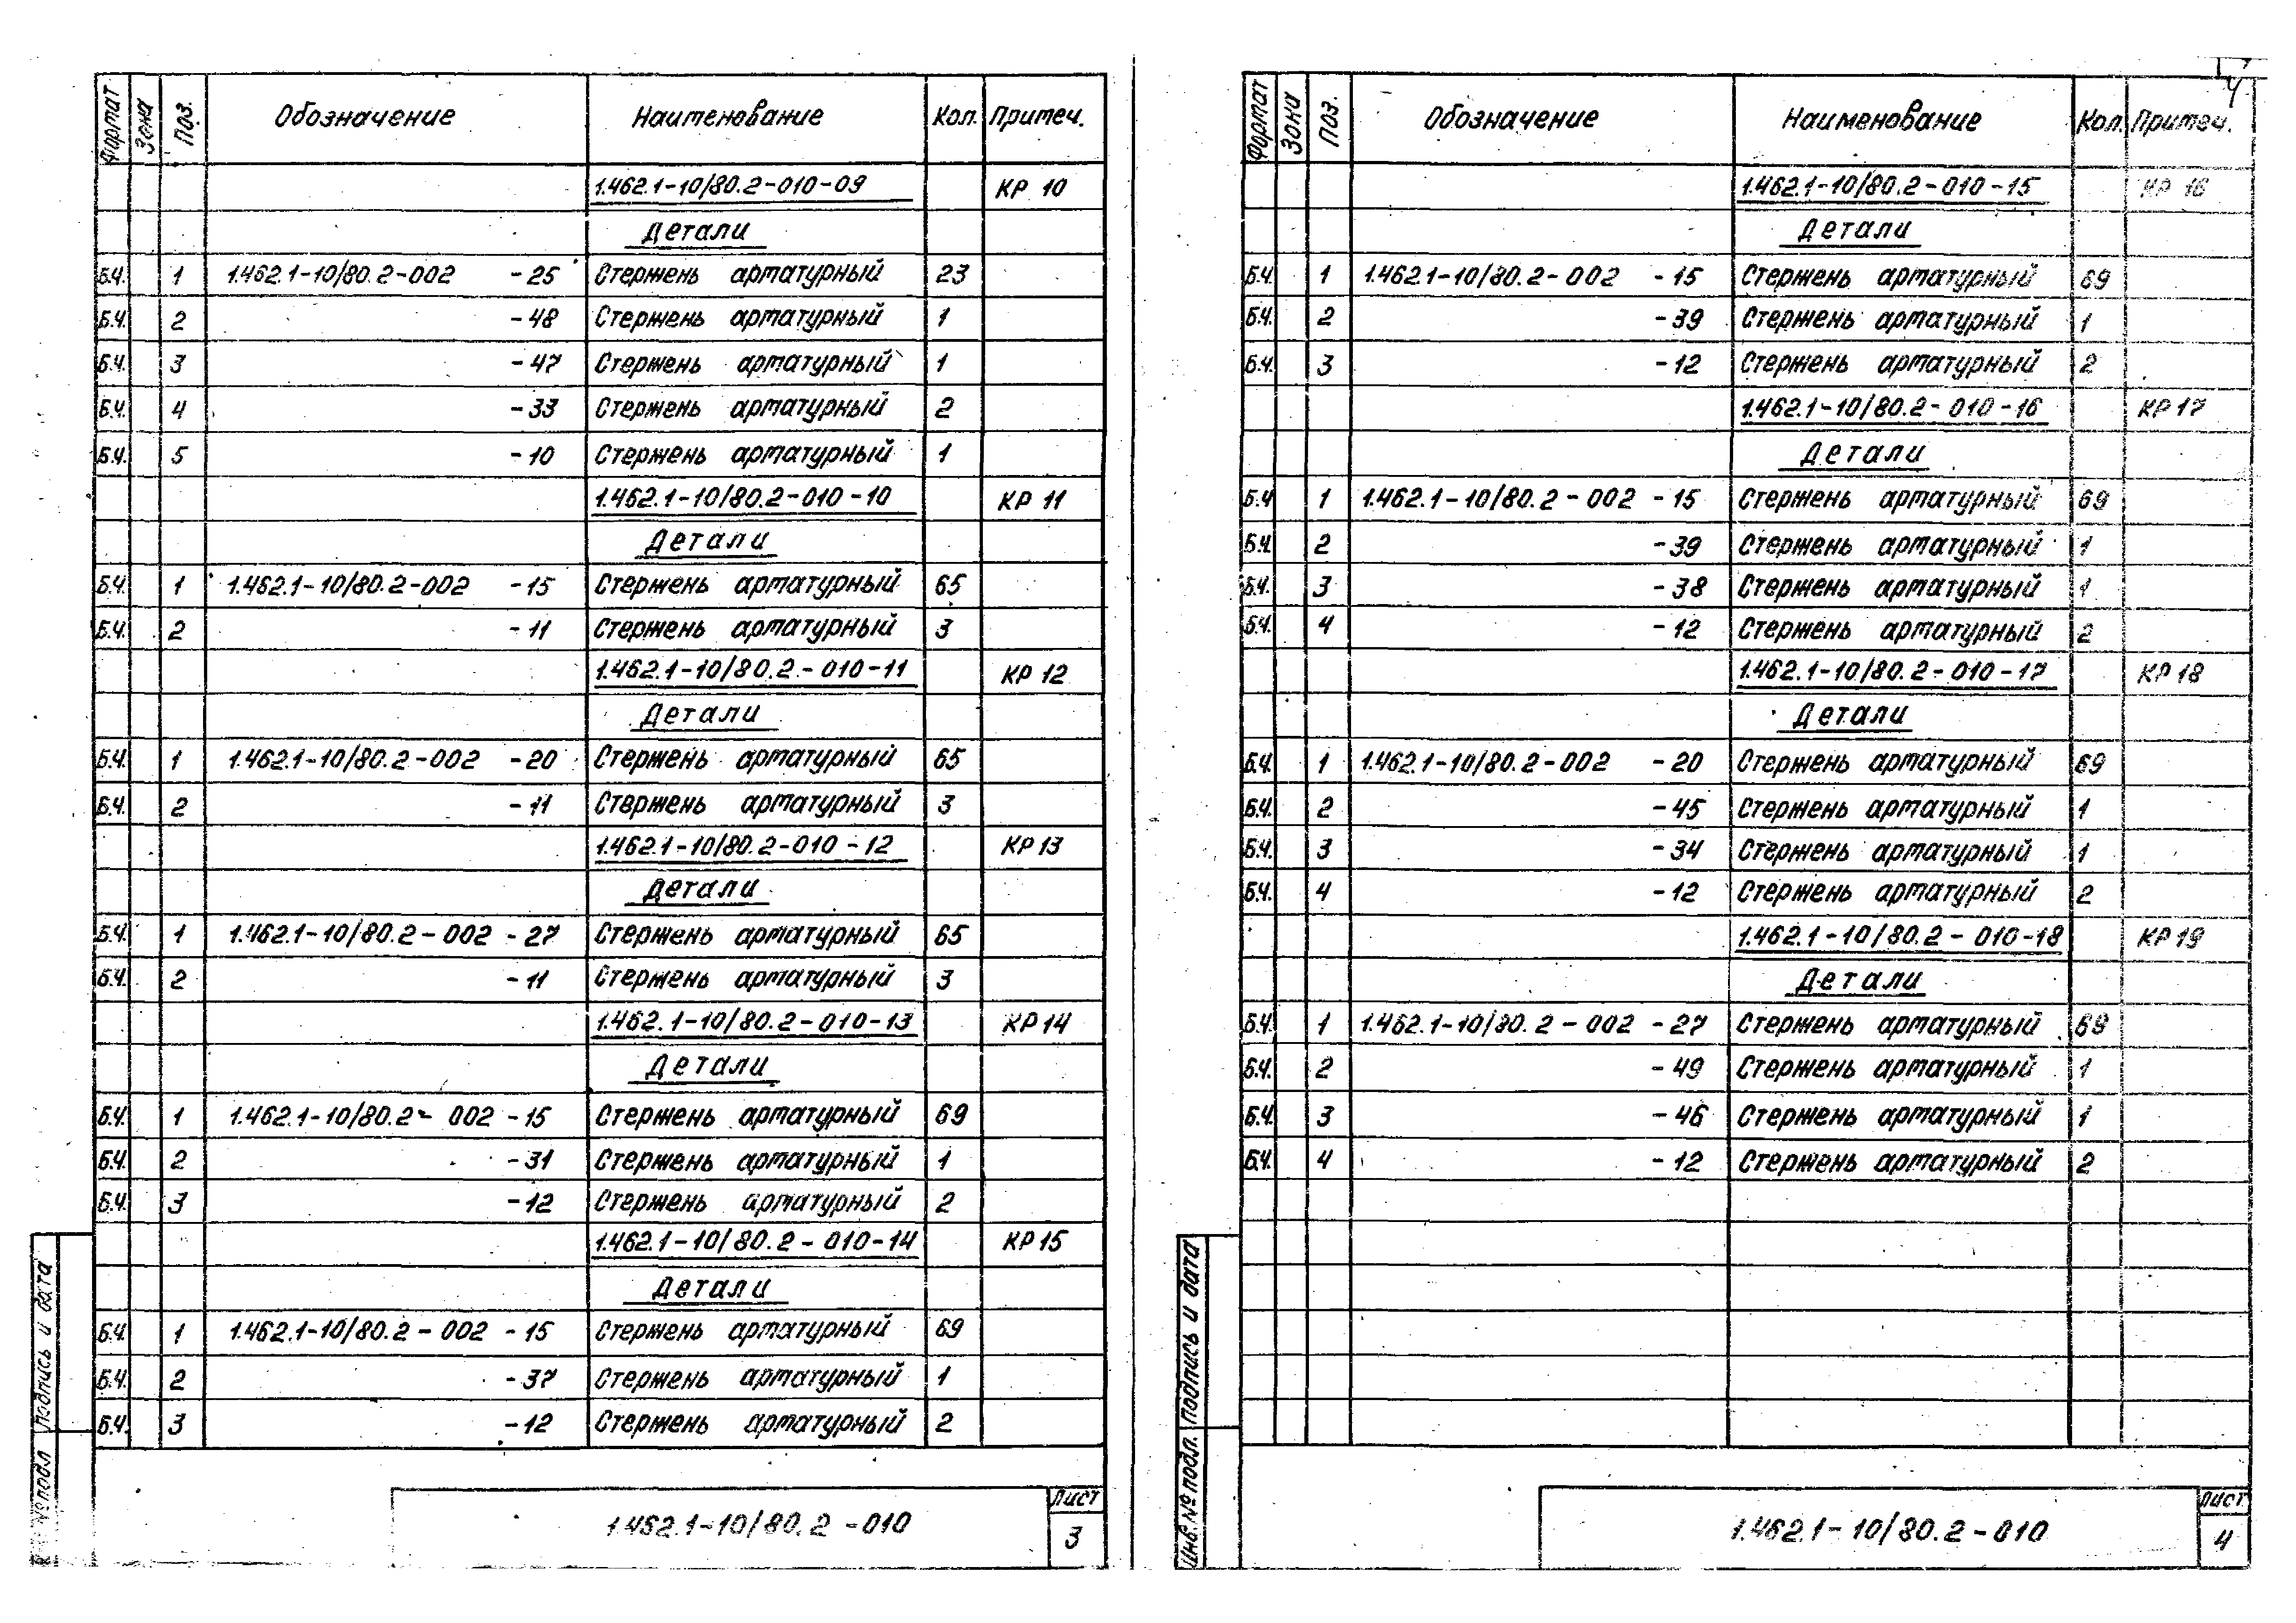 Формат Зона Поз. Обозначение Наименование Кол. Примеч.
1.462.1-10/80.2-010-09 КР 10
Детали
Б.Ч. 1 1.462.1-10/80.2-002 -25 Стержень арматурный 23
Б.Ч. 2 -48 Стержень арматурный 1
Б.Ч. 3 -47 Стержень арматурный 1
Б.Ч. 4 -33 Стержень арматурный 2
Б.Ч. 5 -10 Стержень арматурный 1
1.462.1-10/80.2-010-10 КР 11
Детали
Б.Ч. 1 1.462.1-10/80.2-002 -15 Стержень арматурный 65
Б.Ч. 2 -11 Стержень арматурный 3
1.462.1-10/80.2-010-11 КР 12
Детали
Б.Ч. 1 1.462.1-10/80.2-002 -20 Стержень арматурный 65
Б.Ч. 2 -11 Стержень арматурный 3
1.462.1-10/80.2-010-12 КР 13
Детали
Б.Ч. 1 1.462.1-10/80.2-002 -27 Стержень арматурный 65
Б.Ч. 2 -11 Стержень арматурный 3
1.462.1-10/80.2-010-13 КР 14
Детали
Б.Ч. 1 1.462.1-10/80.2-002 -15 Стержень арматурный 69
Б.Ч. 2 -31 Стержень арматурный 1
Б.Ч. 3 -12 Стержень арматурный 2
1.462.1-10/80.2-010-14 КР 15
Детали
Б.Ч. 1 1.462.1-10/80.2-002 -15 Стержень арматурный 69
Б.Ч. 2 -37 Стержень арматурный 1
Б.Ч. 3 -12 Стержень арматурный 2
№ подл Подпись и дата
1.462.1-10/80.2-010
Лист
3
4
Формат Зона Поз. Обозначение Наименование Кол. Примеч.
1.462.1-10/80.2-010-15 КР 16
Детали
Б.Ч. 1 1.462.1-10/80.2-002 -15 Стержень арматурный 69
Б.Ч. 2 -39 Стержень арматурный 1
Б.Ч. 3 -12 Стержень арматурный 2
1.462.1-10/80.2-010-16 КР 17
Детали
Б.Ч 1 1.462.1-10/80.2-002 -15 Стержень арматурный 69
Б.Ч. 2 -39 Стержень арматурный 1
Б.Ч. 3 -38 Стержень арматурный 1
Б.Ч. 4 -12 Стержень арматурный 2
1.462.1-10/80.2-010-17 КР 18
Детали
Б.Ч. 1 1.462.1-10/80.2-002 -20 Стержень арматурный 69
Б.Ч. 2 -45 Стержень арматурный 1
Б.Ч. 3 -34 Стержень арматурный 1
Б.Ч. 4 -12 Стержень арматурный 2
1.462.1-10/80.2-010-18 КР 19
Детали
Б.Ч. 1 1.462.1-10/80.2-002 -27 Стержень арматурный 69
Б.Ч. 2 -49 Стержень арматурный 1
Б.Ч. 3 -46 Стержень арматурный 1
Б.Ч. 4 -12 Стержень арматурный 2
Инв. № подл. Подпись и дата
1.462.1-10/80.2-010
Лист
4